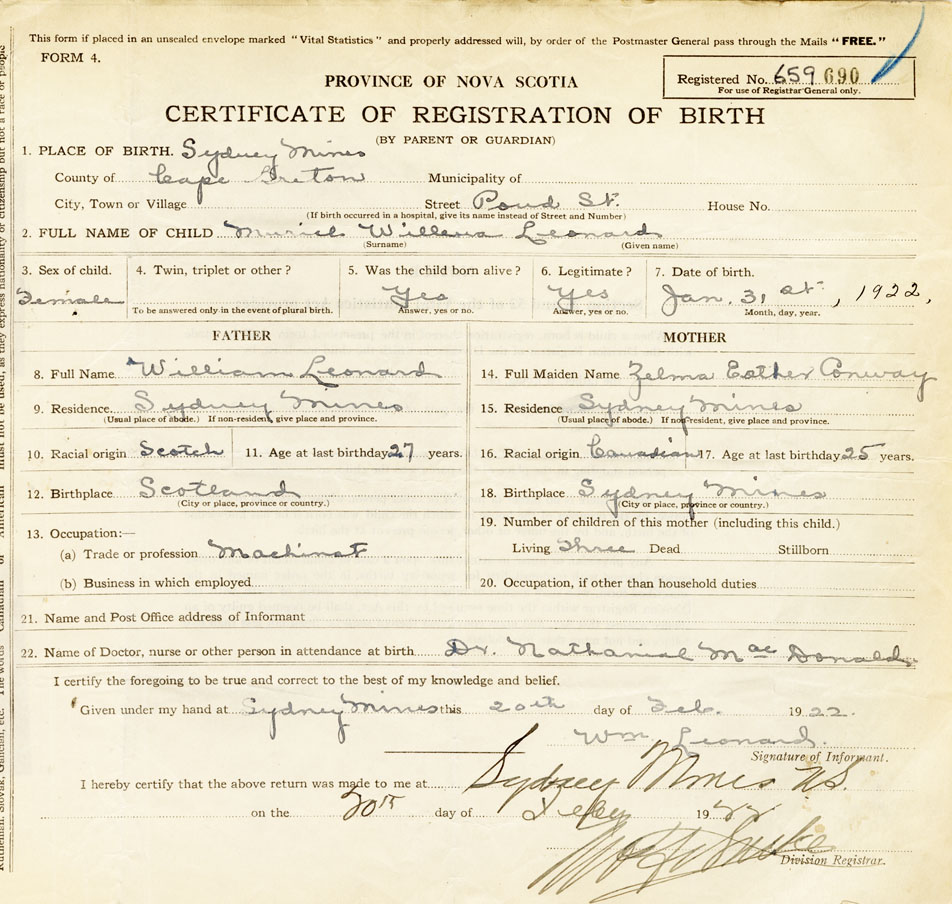 This form if placed in an unsealed envelope marked "Vital Statistics" and properly addressed will, by order of the Postmaster General pass through the Mails "FREE."
FORM 4.
Registered No. 659 690
For use of Registrar General only.
PROVINCE OF NOVA SCOTIA
CERTIFICATE OF REGISTRATION OF BIRTH
(BY PARENT OR GUARDIAN)
1. PLACE OF BIRTH. Sydney Mines
County of Cape Breton Municipality of
City, Town or Village Street Pond St. House No.
(If birth occurred in a hospital, give its name instead of Street and Number)
2. FULL NAME OF CHILD Muriel Willena Leonard
(Surname) (Given name)
3. Sex of child. 4. Twin, triplet or other? 5. Was the child born alive? 6. Legitimate? 7. Date of birth.
Female Yes Yes Jan. 31st, 1922,
To be answered only in the event of plural birth. Answer, yes or no. Answer, yes or no. Month, day, year.
FATHER MOTHER
8. Full Name William Leonard 14. Full Maiden Name Zelma Esther Conway
9. Residence. Sydney Mines 15. Residence Sydney Mines
(Usual place of abode.) If non-resident, give place and province. (Usual place of abode.) If non-resident, give place and province.
10. Racial origin Scotch 11. Age at last birthday 27 years. 16. Racial origin Canadian 17. Age at last birthday 25 years.
12. Birthplace Scotland 18. Birthplace Sydney Mines
(City or place, province or country.) (City or place, province or country.)
13. Occupation:— 19. Number of children of this mother (including this child.)
(a) Trade or profession Machinst Living Three Dead Stillborn
(b) Business in which employed 20. Occupation, if other than household duties
21. Name and Post Office address of Informant
22. Name of Doctor, nurse or other person in attendance at birth Dr. Nathanial MacDonald
I certify the foregoing to be true and correct to the best of my knowledge and belief.
Given under my hand at Sydney Mines this 20th day of Feb. 1922.
Wm. Leonard.
Signature of Informant.
I hereby certify that the above return was made to me at Sydney Mines N.S.
on the 20th day of 1922
Division Registrar.